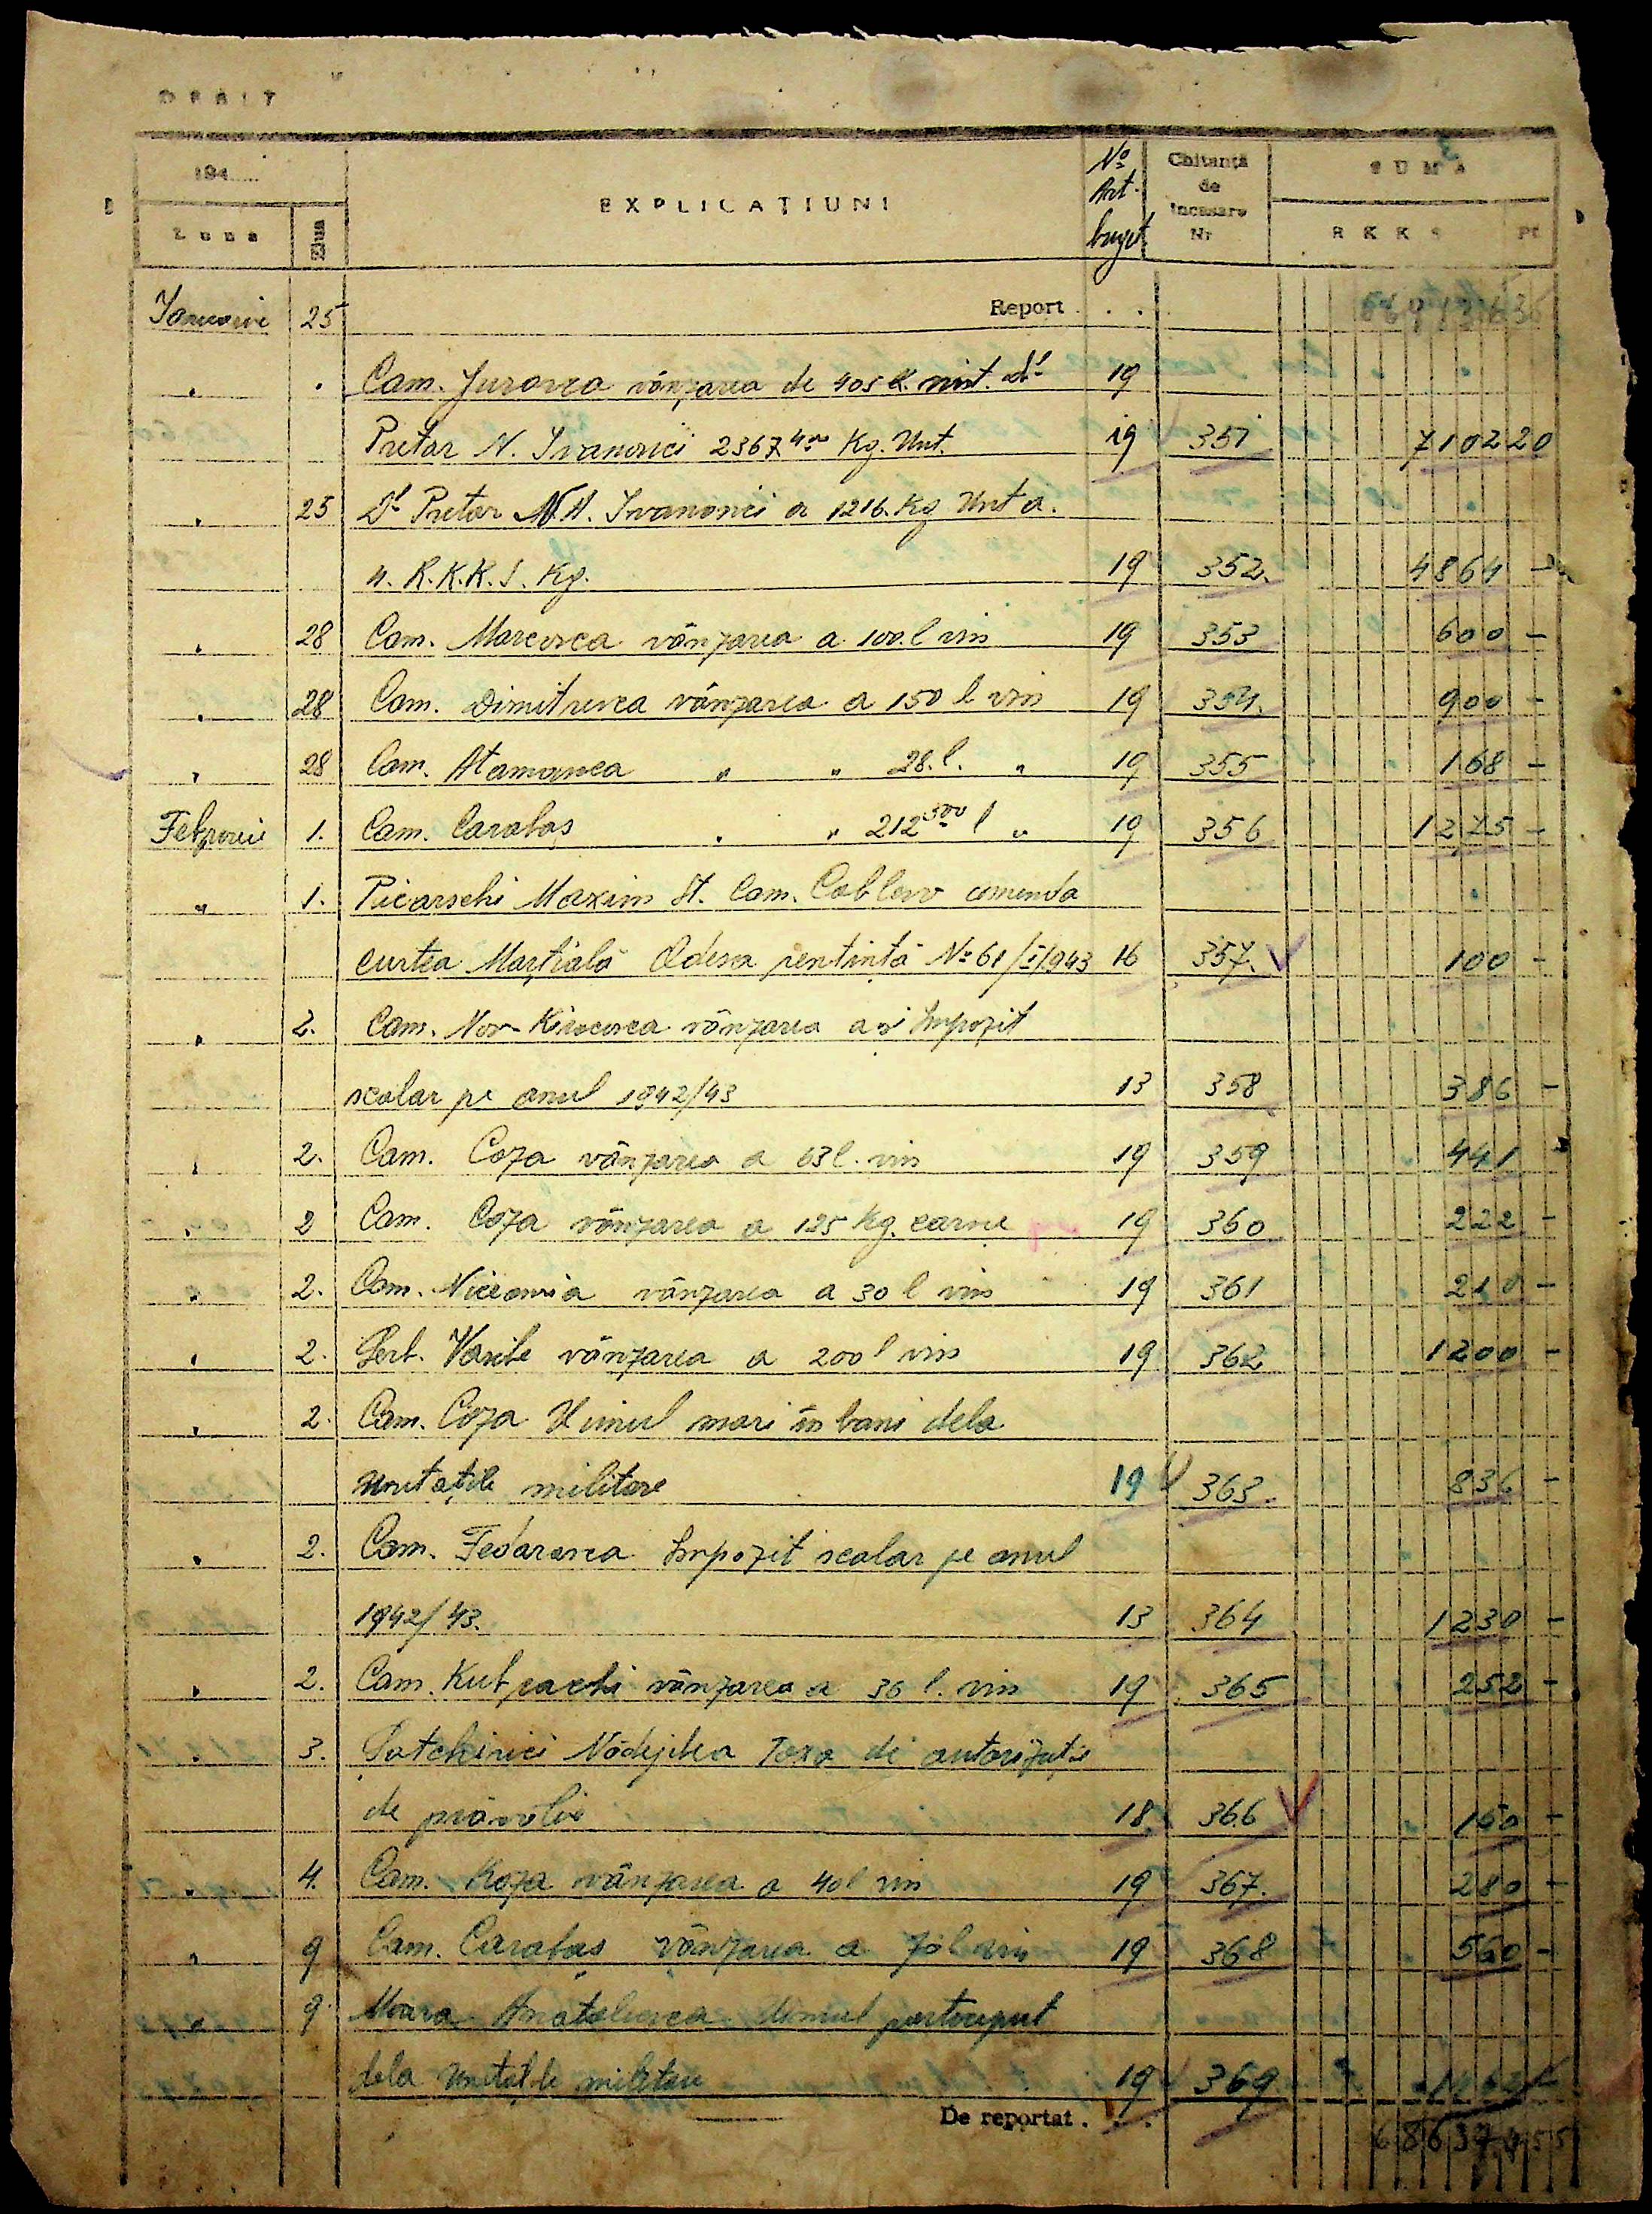 DEBIT
194.....
Luna
Ziua
EXPLICAȚIUNI
No Art. buget
Chitanță de încasare Nr
SUMA
3
R K K S
Pf
Ianuarie 25 Report . .
" . Com. Jurovca vânzarea de 405 K. unt. dl 19
Pretor N. Ivanovici 2367,400 Kg. Unt. 19 351 7102 20
" 25 Dl Pretor N. A. Ivanovici a 1216 Kg Unt a.
4. R.K.K.S. Kg. 19 352. 4864 -
" 28 Com. Marcovca vânzarea a 100 l vin 19 353 600 -
" 28 Com. Dimitrevca vânzarea a 150 l vin 19 354. 900 -
" 28 Com. Atamanca " " 28. l. " 19 355 168 -
Februarie 1. Com. Carabaș " " 212 500 l " 19 356 1275 -
" 1. Picarschi Maxim st. Com. Coblevo amenda
curtea Marțială Odesa sentință No 61/I/1943 16 357. 100 -
" 2. Com. Nov-Kirocovca vânzarea a și Impozit
scolar pe anul 1942/43 13 358 386 -
" 2. Com. Coza vânzarea a 63 l. vin 19 359 441 -
" 2 Com. Coza vânzarea a 125 Kg. carne 19 360 222 -
" 2. Com. vânzarea a 30 l vin 19 361 210 -
" 2. Vasile vânzarea a 200 l vin 19 362 1200 -
" 2. Com. Coza Uiumul mori în bani dela
Unitațile militare 19 363. 836 -
" 2. Com. Feodorovca Impozit scolar pe anul
1942/43. 13 364 1230 -
" 2. Com. vânzarea a 36 l. vin 19 365 252 -
" 3. Nădejdea Taxa de autorizație
de prăvălie 18. 366 150 -
" 4. Com. Koza vânzarea a 40 l vin 19 367. 280 -
" 9 Com. Carabaș vânzarea a 70 l vin 19 368 560 -
" 9. Moara Anatolievca Uiumul
dela Unitațile militare 19 369
De reportat . . .